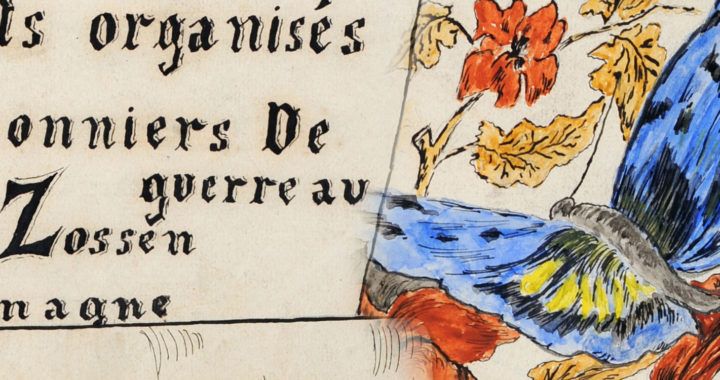 ls organisés
onniers De
guerre au
Zossen
magne